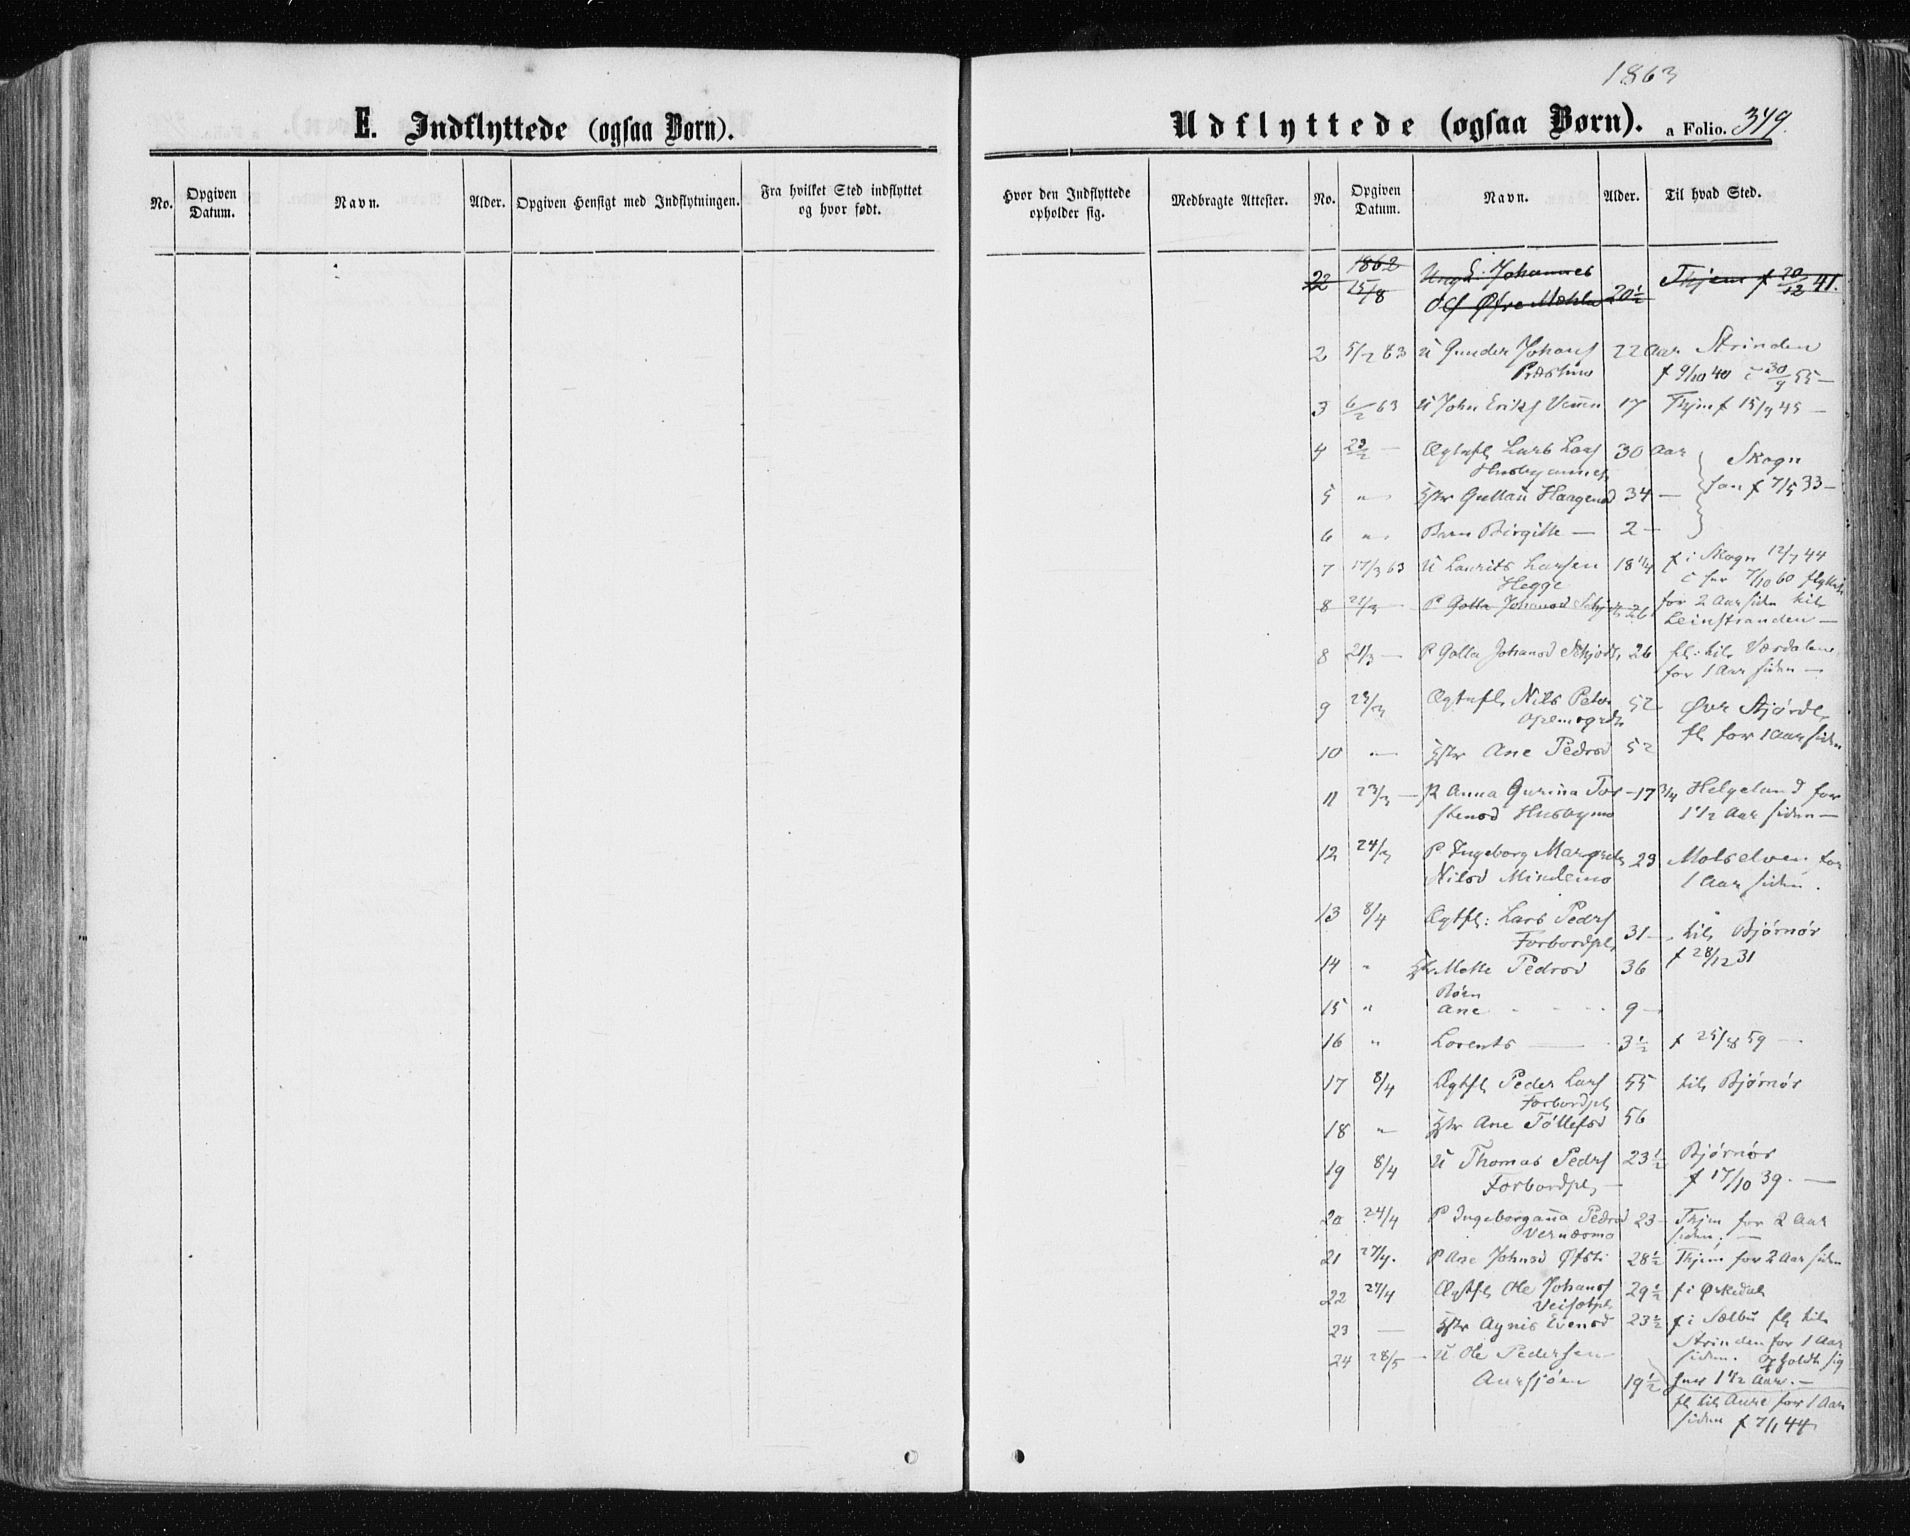 1863
E. Indflyttede (ogsaa Børn).
Udflyttede (ogsaa Børn). a Folio. 349.
No. Opgiven Datum. Navn. Alder. Opgiven Hensigt med Indflytningen. Fra hvilket Sted indflyttet og hvor født.
Hvor den Indflyttede opholder sig. Medbragte Attester. No. Opgiven Datum. Navn. Alder. Til hvad Sted.
22 1862 15/8 Ung E. Johannes Olf Øfre Mæhla 20½ Thjem f 20/12 41.
2 5/2 63 U Gunder Johansf 22 Aar Strinden
f 9/10 40 c 30/9 55 —
3 6/2 63 U John Eriksf 17 Thjm f 15/9 45 —
4 23/2 — Ægtefl Lars Larsf 30 Aar Skogn
5 " Hstr Gullau Haagensd 34 — han f 7/5 33 —
6 " Barn Birgitte — 2 —
7 17/3 63 U Laurits Larsen Hegge 18¼ f i Skogn 12/7 44
c her 7/10 60
8 21/3 P Golla Johansd 26 for 2 Aar siden til
Leinstranden —
8 21/3 — P Golla Johansd 26 fl: til Værdalen
for 1 Aar siden —
9 23/3 Ægtefl Nils Peter 52 Øvr Stjørd
fl for 1 Aar siden
10 — Hstr Ane Pedrsd 52
11 23/3 — P Anna Gurina Tor- 17¾ Helgeland for
stensd Husbymo 1½ Aar siden —
12 24/3 P Ingeborg Margrete 23 Malselven for
Nilsd Mindemo 1 Aar siden.
13 8/4 Ægtfl: Lars Pedrf
Forbordpl 31 — til Bjørnør
f 28/12 31
14 " Hstr Mette Pedrsd 36
Børn
15 " Ane 9 —
16 " Lorents — 3½ f 25/8 59 —
17 8/4 Ægtfl Peder Larsf 55 til Bjørnør
Forbordpl
18 " Hstr Ane Töllefsd 56
19 8/4 U Thomas Pedrf 23½ Bjørnør
Forbordpl — f 17/10 39. —
20 24/4 P Ingeborganna Pedrsd 23 — Thjm for 2 Aar
Vernæsmo siden; —
21 27/4. P Ane Johnsd Øfsti 28½ Thjem for 2 Aar siden
22 27/4 Ægtfl Ole Johansf 29½ f i Ørkedal
23 — Hstr Agnis Evensd 23½ f i Sælbu fl til
Strinden for 1 Aar
24 28/5 — U Ole Pedersen siden. Opholdt sig
Aursjöen 19½ her 1½ Aar. —
fl til Aure for 1 Aar
siden f 7/1 44